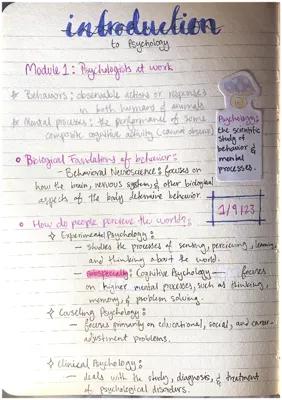 introduction
to Psychology
Module 1: Psychologists at work
* Behaviors: observable actions or responses
in both humans & animals
* Mental processes: the performance of some
composite cognitive activity (cannot observe)
Psychology:
the scientific
study of
behavior &
mental
processes.
Biological Foundations of behavior:
- Behavioral Neuroscience: focuses on
how the brain, nervous system, & other biological
aspects of the body determine behavior.
1/9/23
How do people perceive the world?:
Experimental Psychology:
- studies the processes of sensing, perceiving, learning,
and thinking about the world.
- subspecialty: Cognitive Psychology - focuses
on higher mental processes, such as thinking,
memory, & problem solving.
Counseling Psychology:
- focuses primarily on educational, social, and career-
adjustment problems.
Clinical Psychology:
- deals with the study, diagnosis, & treatment
of psychological disorders.